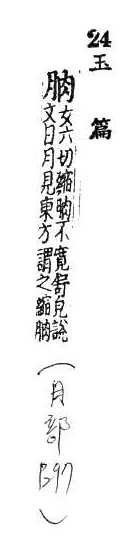 24
玉篇
朒女六切縮朒不寛舒皃說
文曰月見東方謂之縮朒
(月部 B97)